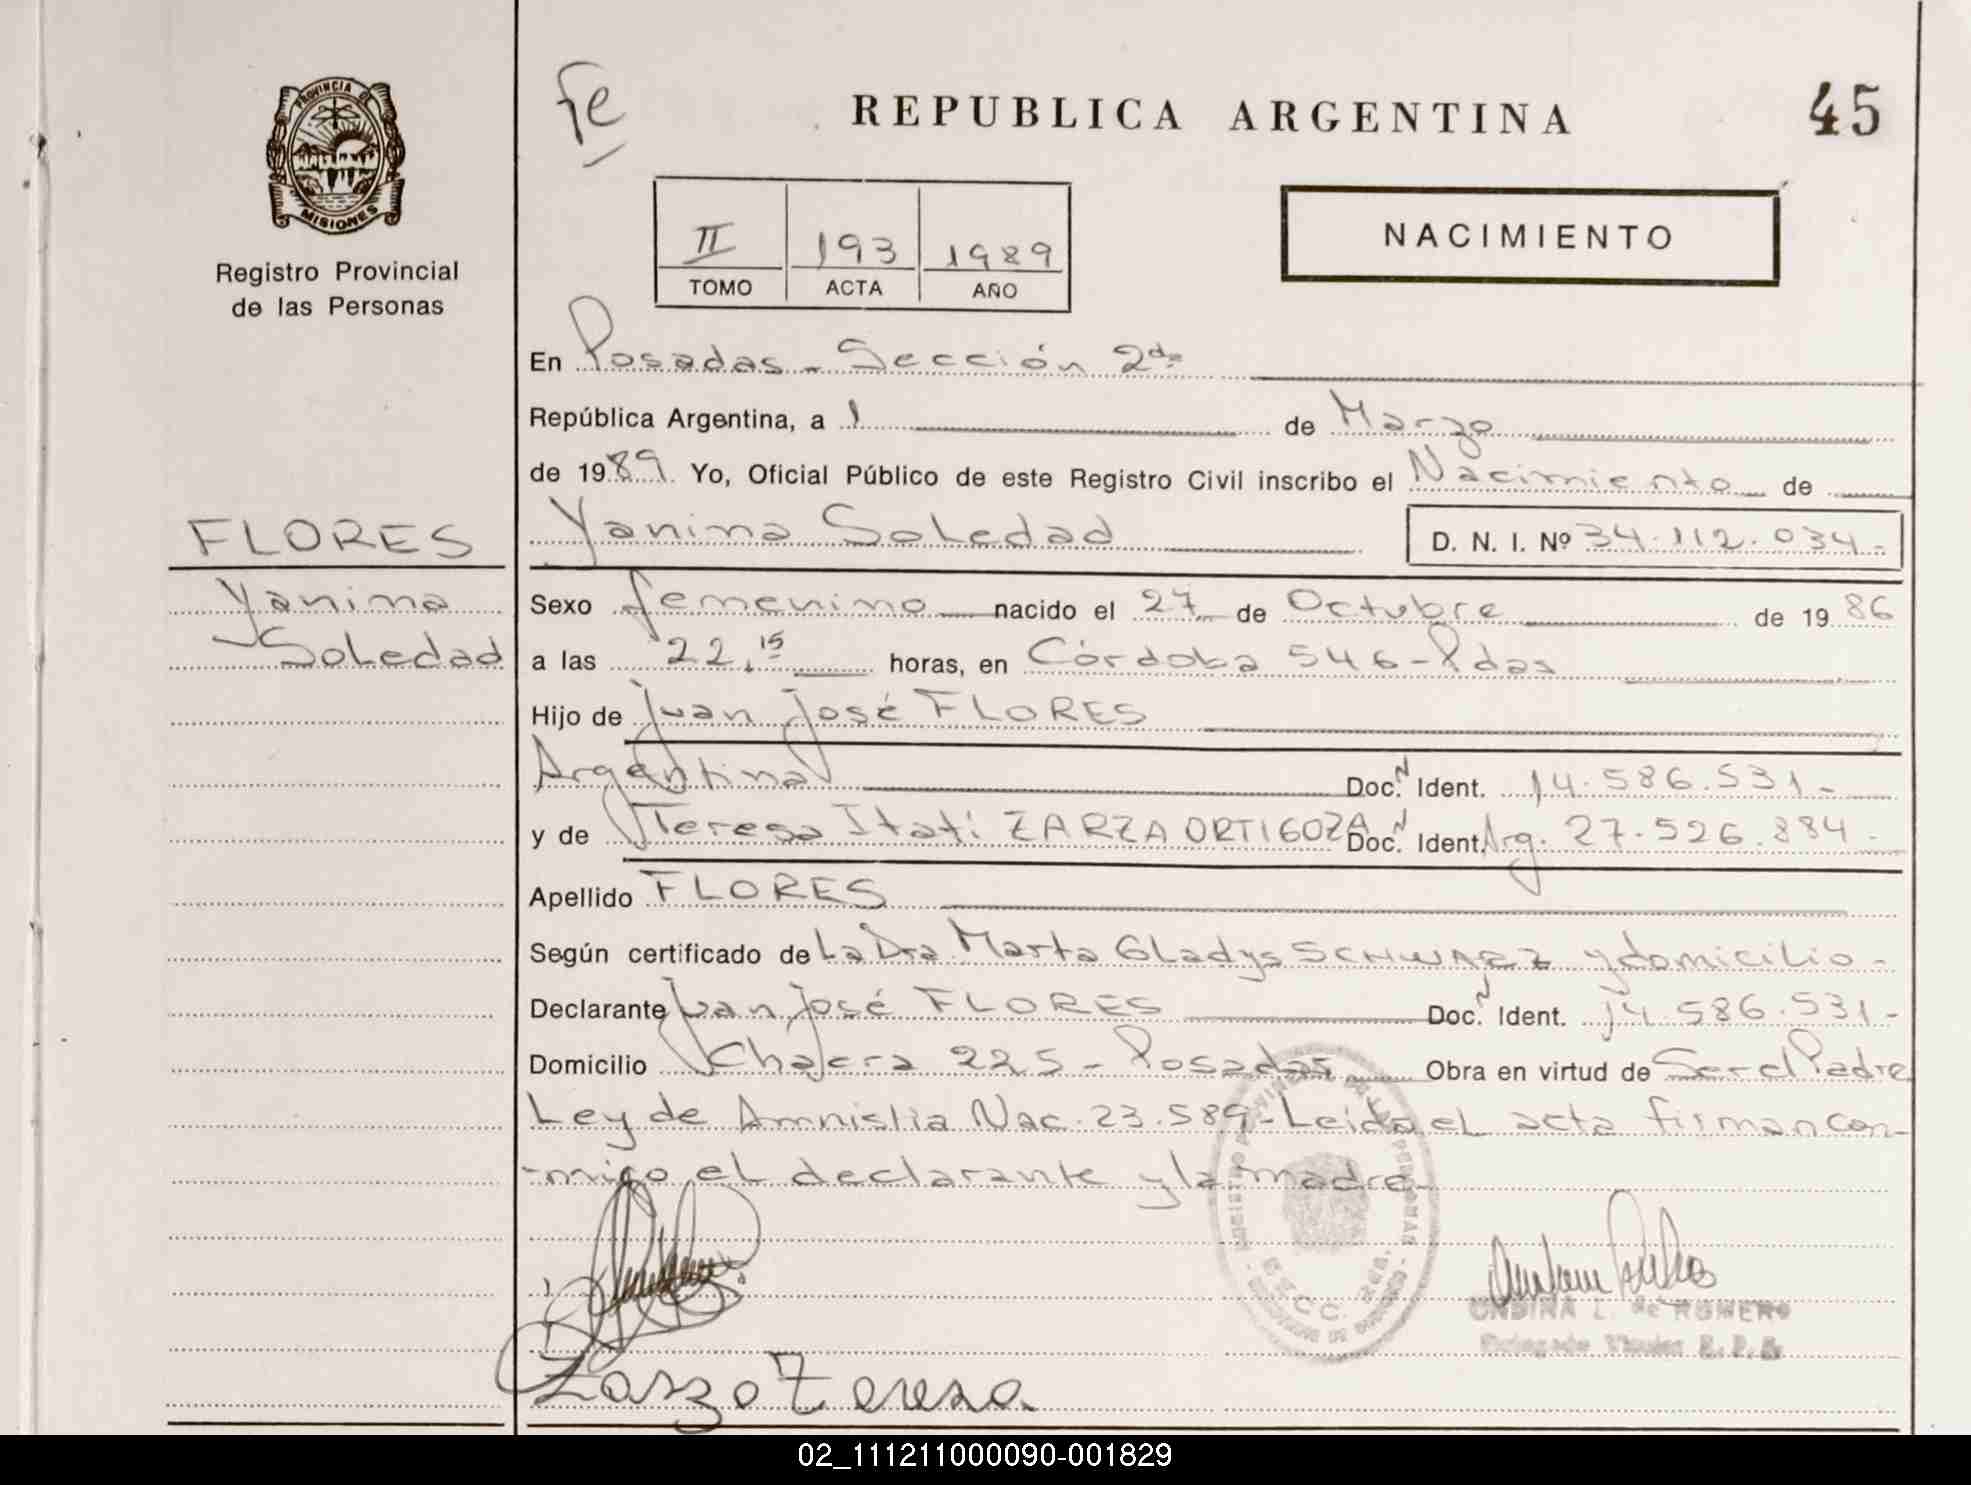 fe
REPUBLICA ARGENTINA
45
PROVINCIA DE
MISIONES
Registro Provincial
de las Personas
II 193 1989
TOMO ACTA AÑO
NACIMIENTO
En Posadas - Sección 2da
República Argentina, a 1 de Marzo
de 1989. Yo, Oficial Público de este Registro Civil inscribo el Nacimiento de
FLORES
Yanima Soledad D. N. I. Nº 34.112.034-
Yanima
Soledad
Sexo femenino nacido el 27 de Octubre de 1986
a las 22.15 horas, en Córdoba 546-Pdas
Hijo de Juan José FLORES
Argentina Doc. N Ident. 14.586.531-
y de Teresa Itatí ZARZA ORTIGOZA Doc. N Ident. Arg. 27.526.884-
Apellido FLORES
Según certificado de La Dra Marta Gladys SCHWARZ y domicilio-
Declarante Juan José FLORES Doc. N Ident. 14.586.531-
Domicilio Chacra 225 - Posadas Obra en virtud de Ser el Padre
Ley de Amnistia Nac. 23.589-Leida el acta firman con-
-migo el declarante y la madre-
Zarza Teresa
ONDINA L. de ROMERO
02_111211000090-001829